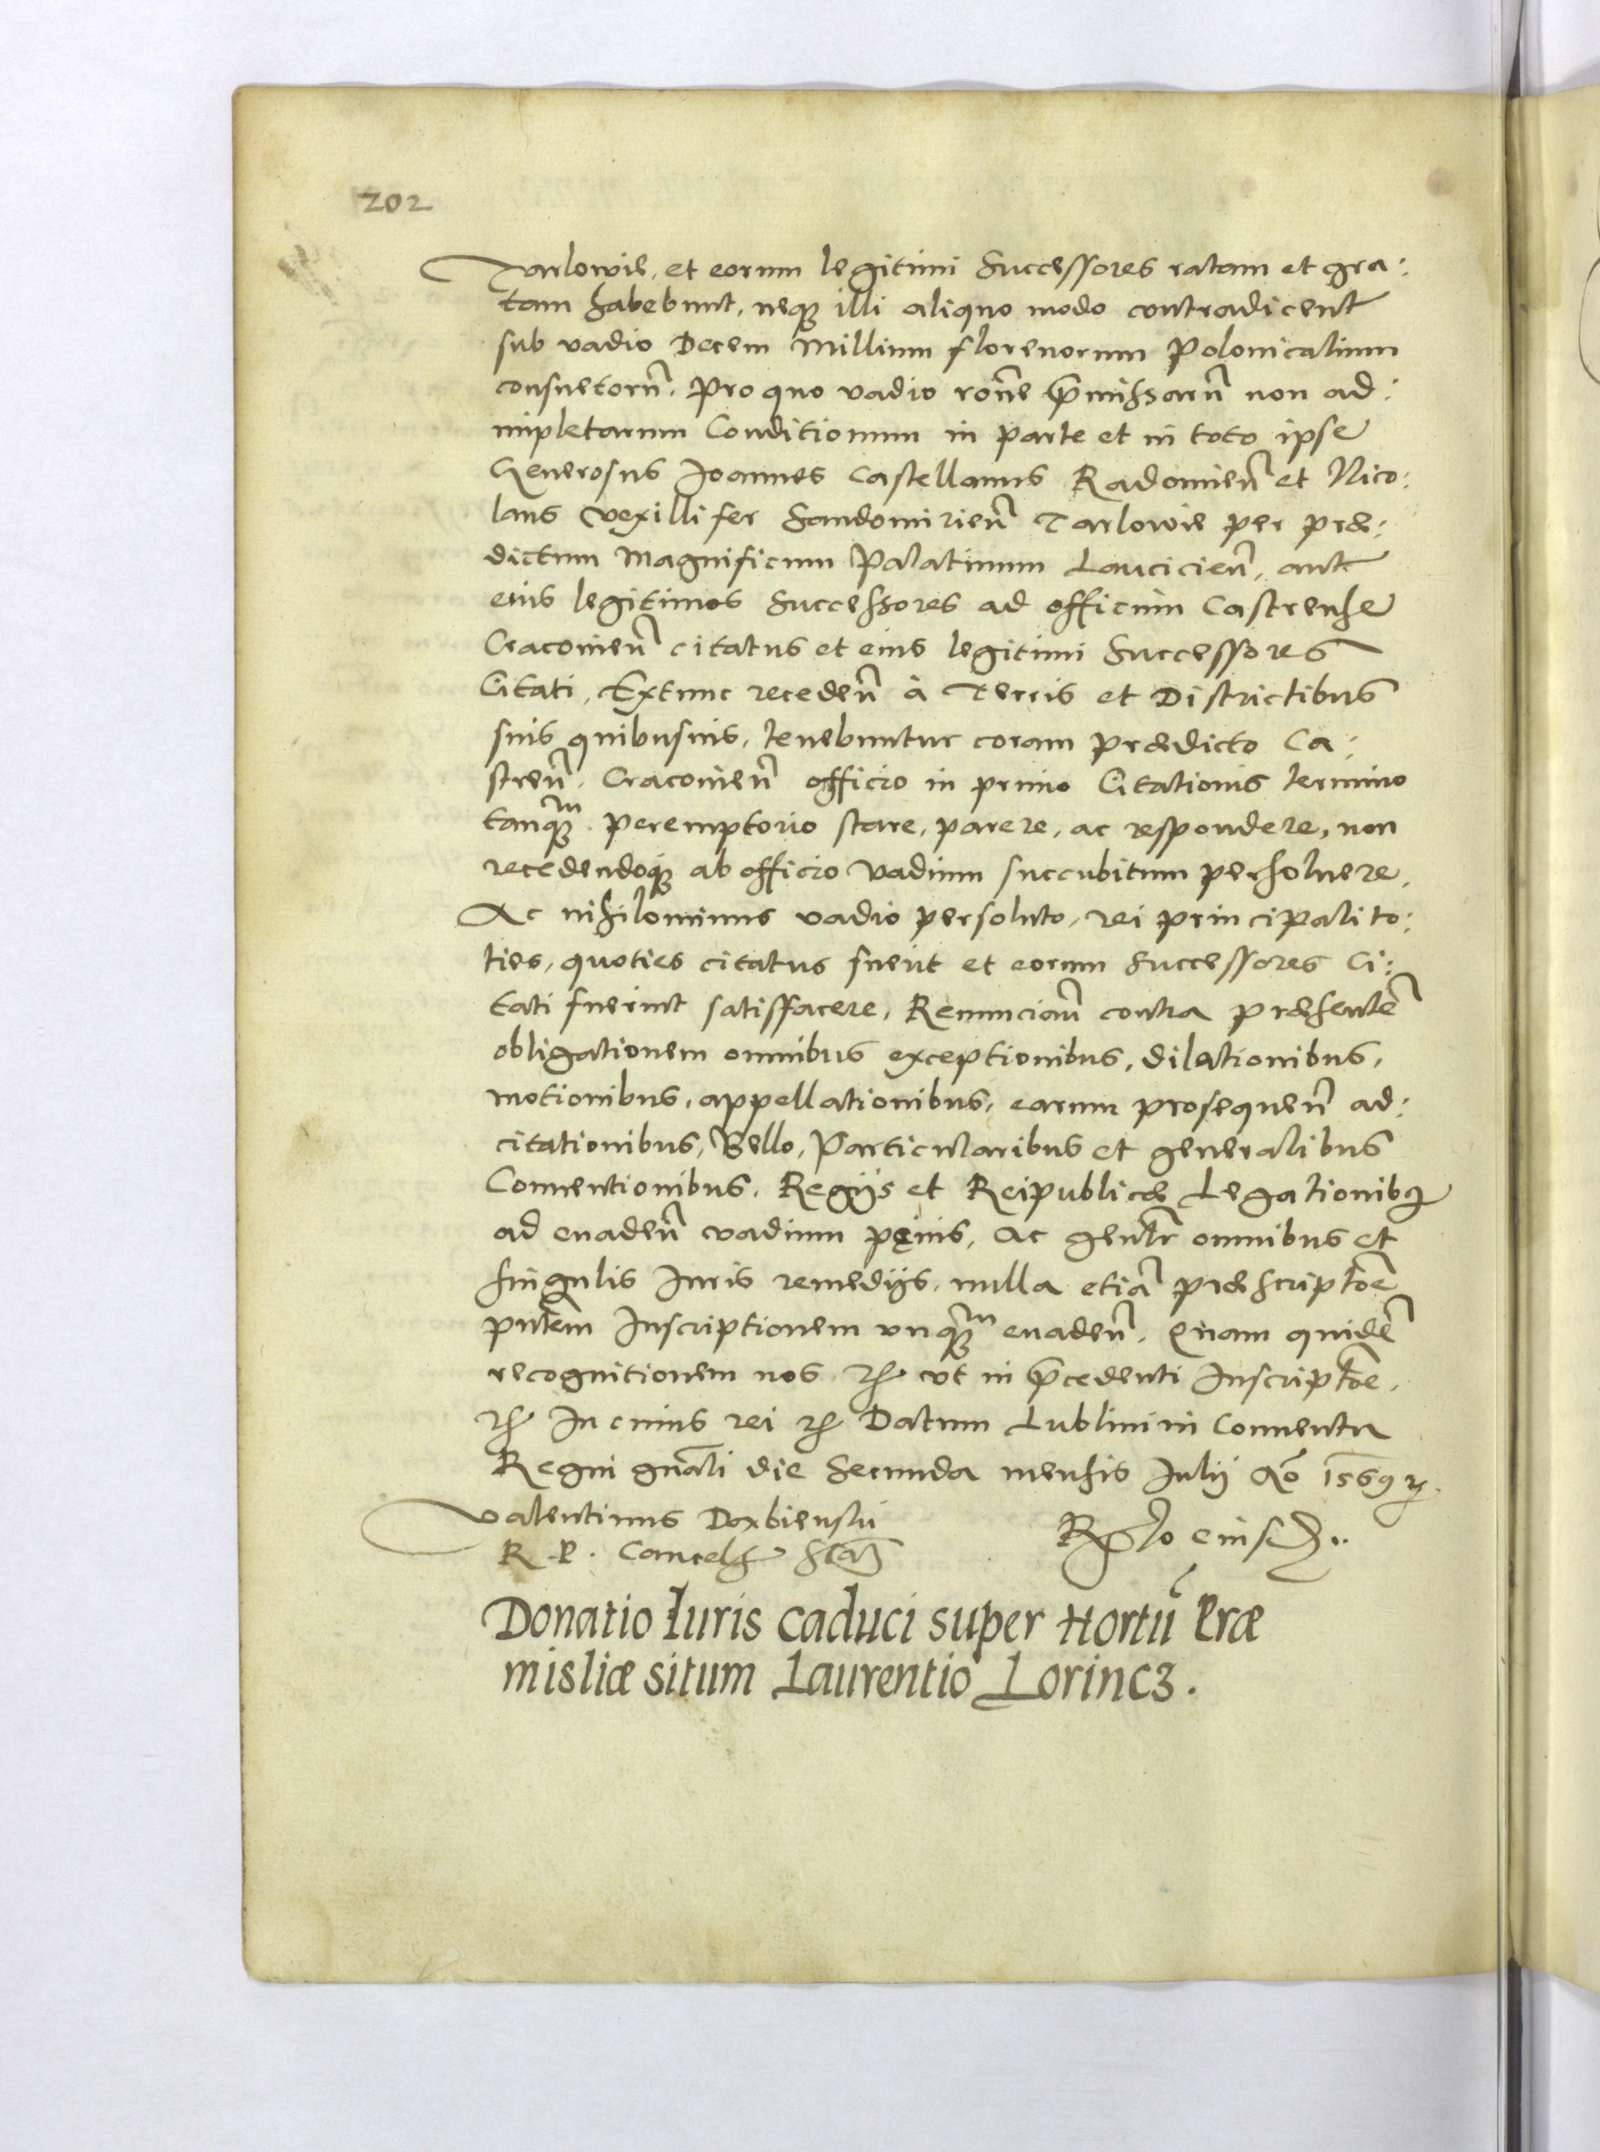 202
Tarlowie, et eorum legitimi Successores ratam et gra:
tam habebunt, neqꝫ illi aliquo modo contradicent
sub vadio Decem Millium florenorum Polonicalium
consuetorū. Pro quo vadio rōne p̄missarū non ad:
impletarum Conditionum in parte et in toto ipse
Generosus Joannes Castellanus Radomien̄ et Nico:
laus Vexillifer Sandomirien̄ Tarlowie per præ:
dictum Magnificum Palatinum Lancicien̄, aut
eius legitimos Successores ad officium Castrense
Cracouien̄ citatus et eius legitimi Successores
Citati, Extunc receden̄ à Terris et Districtibus
suis quibusuis, tenebuntur coram prædicto Ca:
stren̄. Cracouien̄ officio in primo Citationis termino
tanqꝫm peremptorio stare, parere, ac respondere, non
recedendoqꝫ ab officio vadium succubitum persoluere.
Ac nihilominus vadio persoluto, rei principali to:
ties, quoties citatus fuerit et eorum Successores Ci:
tati fuerint satisfacere, Renuncian̄ contra præsentē
obligationem omnibus exceptionibus, dilationibus,
motionibus, appellationibus, earum prosequen̄ ad:
citationibus, Bello, Particularibus et generalibus
Conuentionibus, Regijs et Reipublicæ Legationibꝫ
ad euaden̄ vadium pęnis, Ac genlr̄ omnibus et
singulis Iuris remedijs, nulla etiā præscriptōe
pn̄tem Inscriptionem vnqꝫm euaden̄. Quam quidē
recognitionem nos ꝛc̄ vt in p̄cedenti Inscriptōe.
ꝛc̄ In cuius rei ꝛc̄ Datum Lublini in Conuentu
Regni gn̄ali die Secunda mensis Iulij Aō 1569 ꝛ.
Valentinus Dǝbienski
R. P. Cancell
Rlō eiusd̄..
Donatio Iuris caduci super Hortū Præ
misliæ situm Laurentio Lorincz.